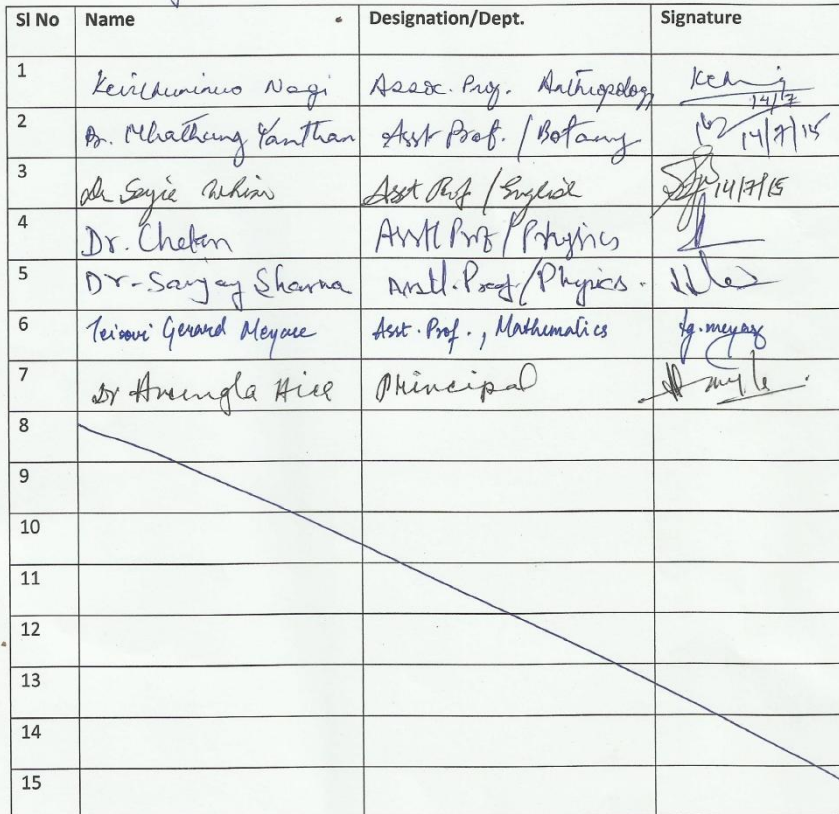 Sl No Name Designation/Dept. Signature
1 Nagi Assoc. Prof. Anthropology 14/7
2 Mhathung Yanthan Asst Prof. / Botany 14/7/15
3 Dr Asst Prof / English 14/7/15
4 Dr. Chetan Asstt Prof / Physics
5 Dr. Sanjay Sharma Asstt. Prof / Physics.
6 Gerard Meyase Asst. Prof., Mathematics
7 Dr Principal
8
9
10
11
12
13
14
15